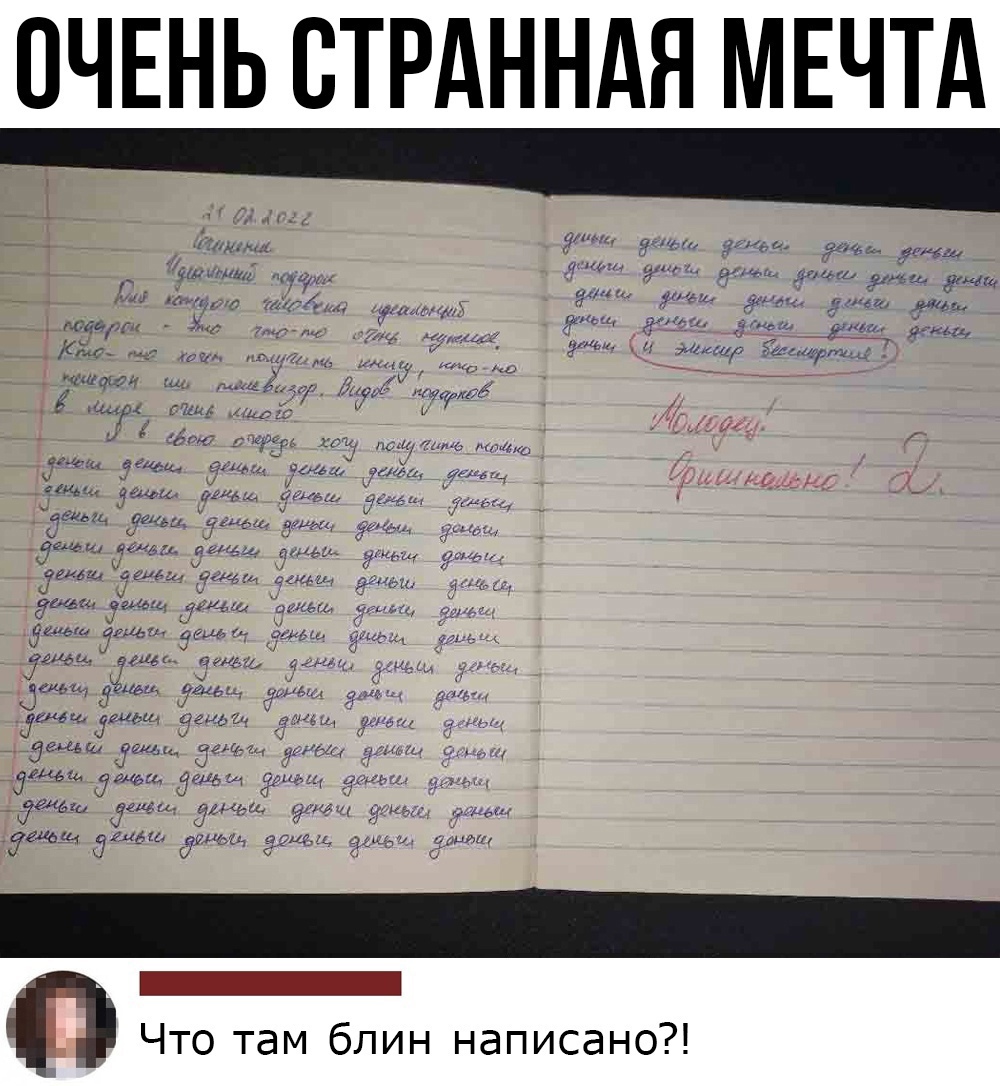 ОЧЕНЬ СТРАННАЯ МЕЧТА
21.02.2022
Сочинение
Идеальный подарок
Для каждого человека идеальный
подарок - это что-то очень нужное.
Кто-то хочет получить книгу, кто-то
телефон или телевизор. Видов подарков
в мире очень много.
Я в свою очередь хочу получить только
деньги деньги деньги деньги деньги деньги
деньги деньги деньги деньги деньги деньги
деньги деньги деньги деньги деньги деньги
деньги деньги деньги деньги деньги деньги
деньги деньги деньги деньги деньги деньги
деньги деньги деньги деньги деньги деньги
деньги деньги деньги деньги деньги деньги
деньги деньги деньги деньги деньги деньги
деньги деньги деньги деньги деньги деньги
деньги деньги деньги деньги деньги деньги
деньги деньги деньги деньги деньги деньги
деньги деньги деньги деньги деньги деньги
деньги деньги деньги деньги деньги деньги
деньги деньги деньги деньги деньги деньги
деньги деньги деньги деньги деньги
деньги деньги деньги деньги деньги деньги
деньги деньги деньги деньги деньги
деньги деньги деньги деньги деньги
деньги и эликсир бессмертия!
Молодец!
Оригинально! 2.
Что там блин написано?!